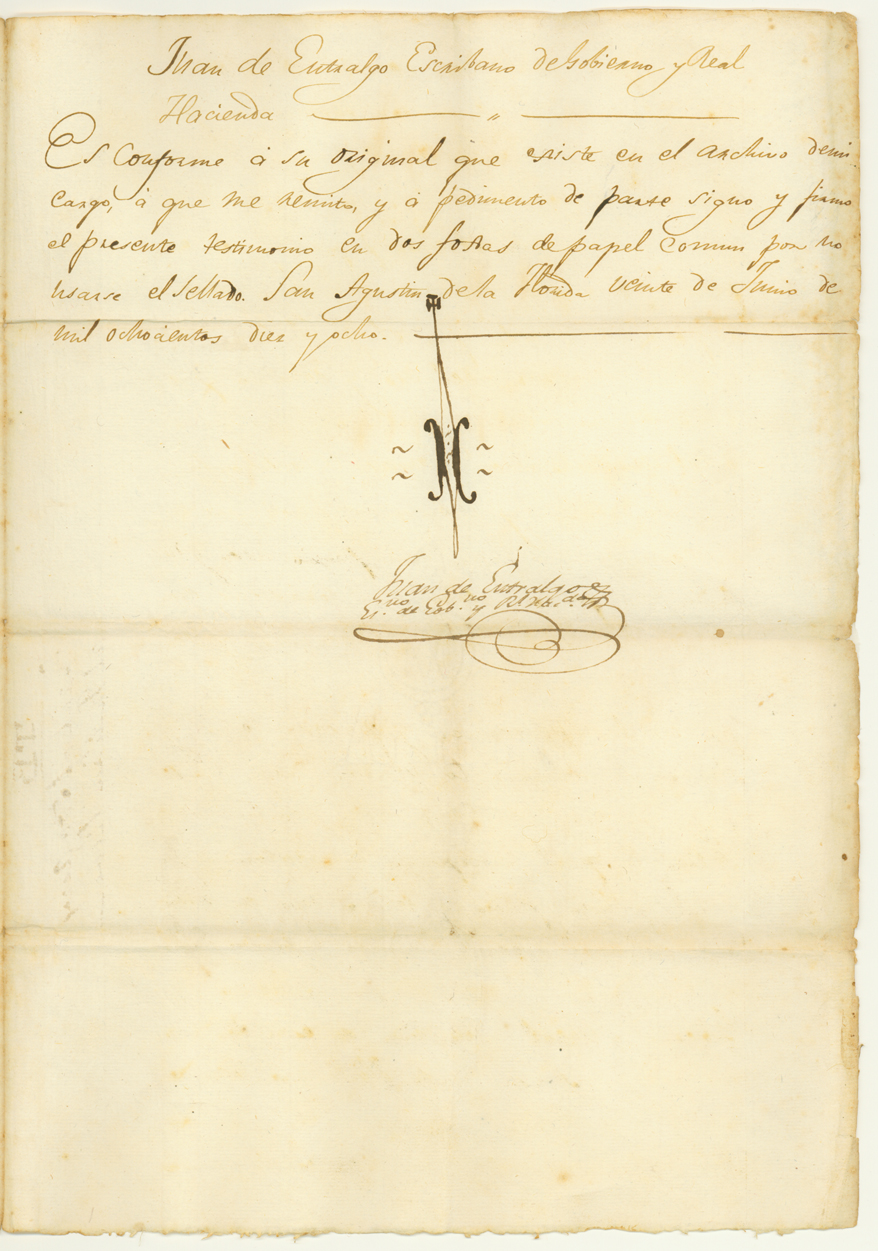 Juan de Entralgo Escribano de Gobierno y Real
Hacienda
Es conforme á su original que existe en el archivo demi
cargo, á que me remito, y á pedimento de parte signo y firmo
el presente testimonio en dos foxas de papel comun por no
usarse el sellado. San Agustin de la Florida veinte de Junio de
mil ochocientos diez y ocho.
Juan de Entralgo
Es.no de Gob.no y Rl Hac.da